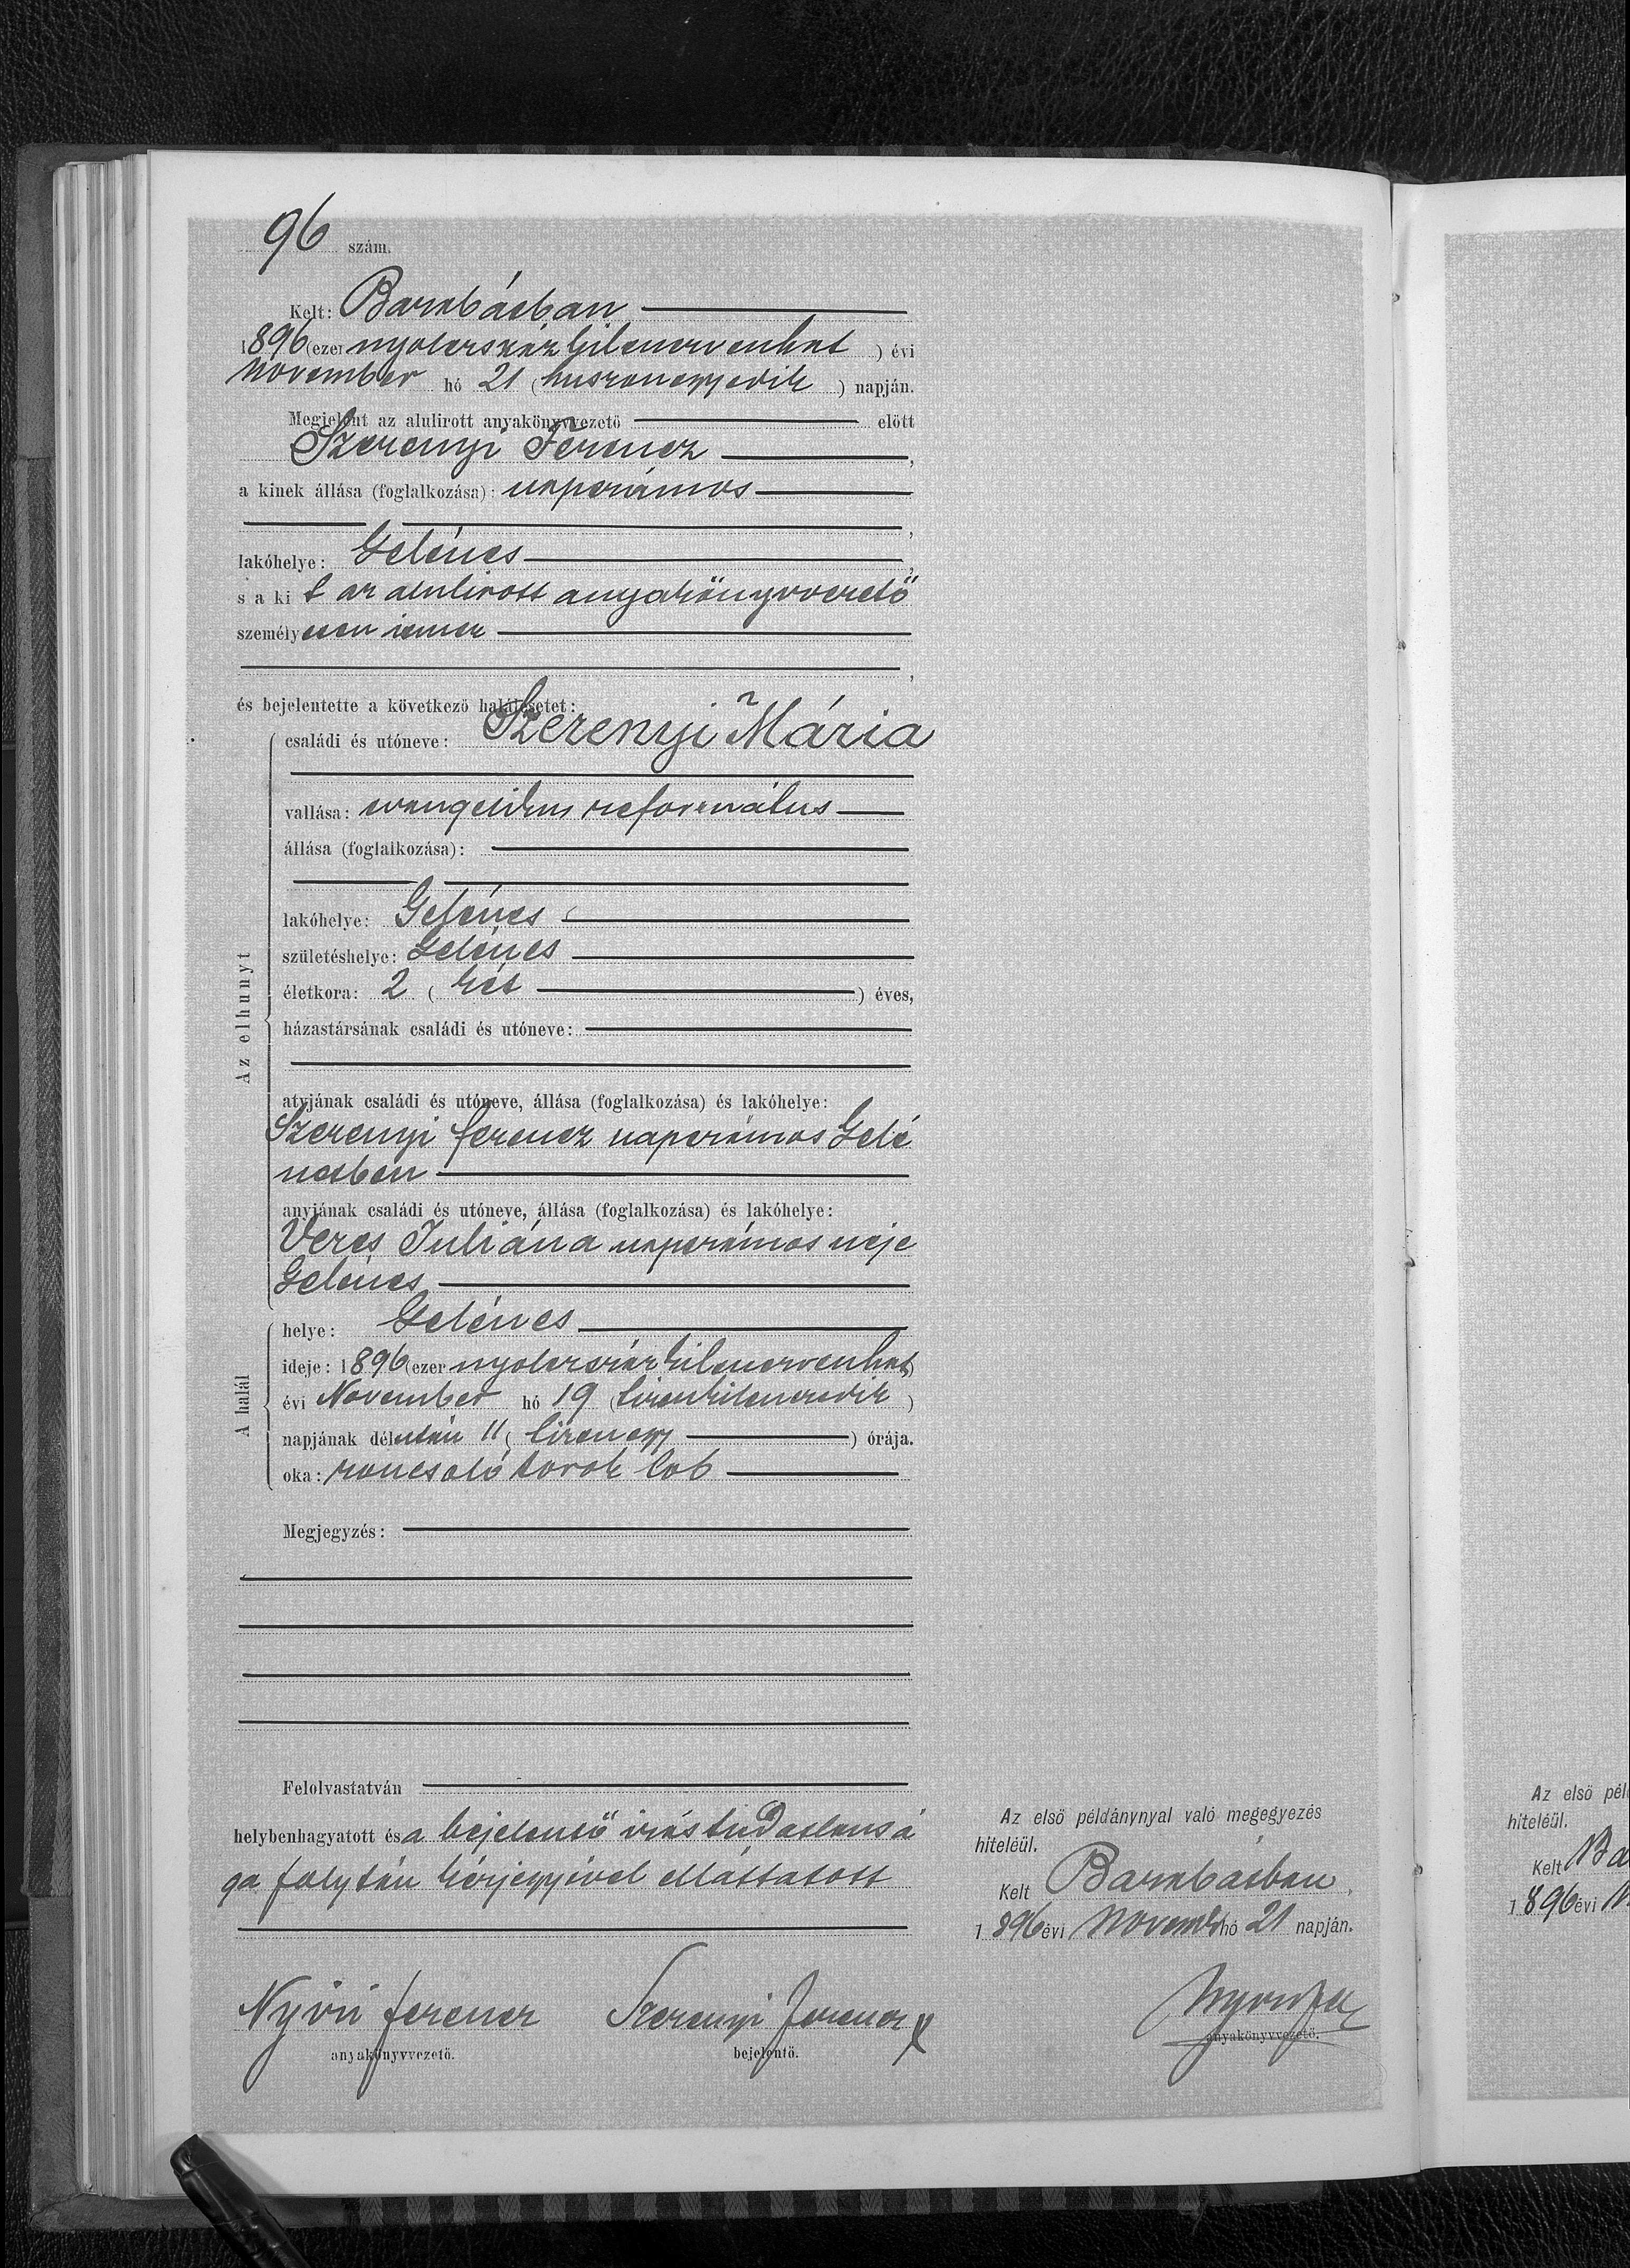 96 szám.
Kelt: Barabásban
1896 (ezer nyolczszázkilenczvenhat) évi
November hó 21 (huszonegyedik) napján.
Megjelent az alulirott anyakönyvvezető előtt
Szerenyi Ferencz,
a kinek állása (foglalkozása): napszámos
,
lakóhelye: Gelénes,
s a kit az alulirott anyakönyvvezető
személyesen ismer
,
és bejelentette a következő halálesetet:
családi és utóneve: Szerenyi Mária
vallása: evangelikus református
állása (foglalkozása):
lakóhelye: Gelénes
születéshelye: Gelénes
életkora: 2 (két) éves,
házastársának családi és utóneve:
Az elhunyt
atyjának családi és utóneve, állása (foglalkozása) és lakóhelye:
Szerenyi Ferencz napszámos Gelé
nesben
anyjának családi és utóneve, állása (foglalkozása) és lakóhelye:
Veres Juliána napszámos neje
Gelénes
A halál
helye: Gelénes
ideje: 1896 (ezer nyolczszázkilenczvenhat)
évi November hó 19 (tizenkilenczedik)
napjának délután 11 (tizenegy) órája.
oka: roncsoló torok lob
Megjegyzés:
Felolvastatván
helybenhagyatott és a bejelentő irástudatlansá
ga folytán kézjegyével elláttatott
Nyíri Ferencz Szerenyi Ferencz x
anyakönyvvezető. bejelentő.
Az első példánynyal való megegyezés
hiteléül.
Kelt Barabásban,
1896 évi Novemb hó 21 napján.
anyakönyvvezető.
Az első pél
hiteléül.
Kelt Ba
1896 évi N